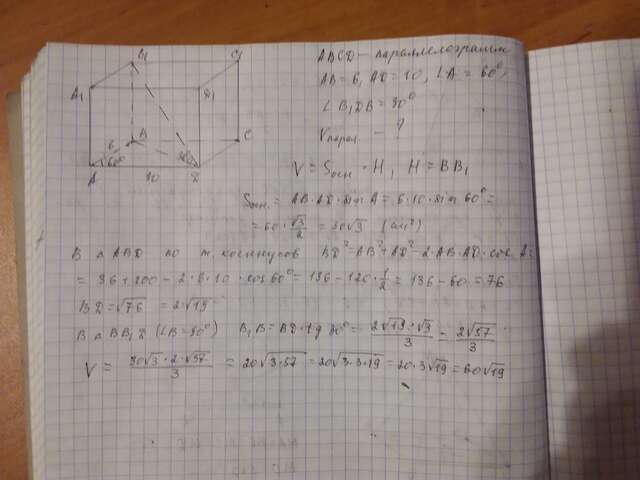 ABCD – параллелограмм
AB = 6, AD = 10, ∠A = 60°
∠B₁DB = 30°
Vпарал. – ?
V = Sосн · H, H = BB₁
Sосн. = AB·AD·sin A = 6·10·sin 60° =
= 60 · √3/2 = 30√3 (см²)
В △ ABD по т. косинусов BD² = AB² + AD² – 2·AB·AD·cos A =
= 36 + 100 – 2·6·10·cos 60° = 136 – 120·1/2 = 136 – 60 = 76
BD = √76 = 2√19
В △ BB₁D (∠B = 90°) B₁B = BD·tg 30° = 2√19·√3/3 = 2√57/3
V = 30√3·2·√57/3 = 20√3·57 = 20√3·3·19 = 20·3√19 = 60√19
B₁
C₁
A₁
D₁
B
C
6
60°
30°
A
10
D